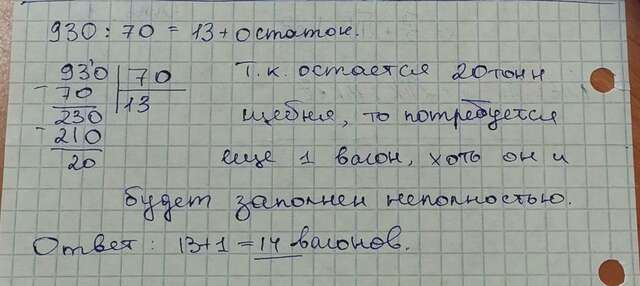 930 : 70 = 13 + остаток.
930 | 70 Т.к. остается 20 тонн
- 70 | 13 щебня, то потребуется
230
- 210 еще 1 вагон, хоть он и
20
будет заполнен неполностью.
Ответ: 13+1 = 14 вагонов.